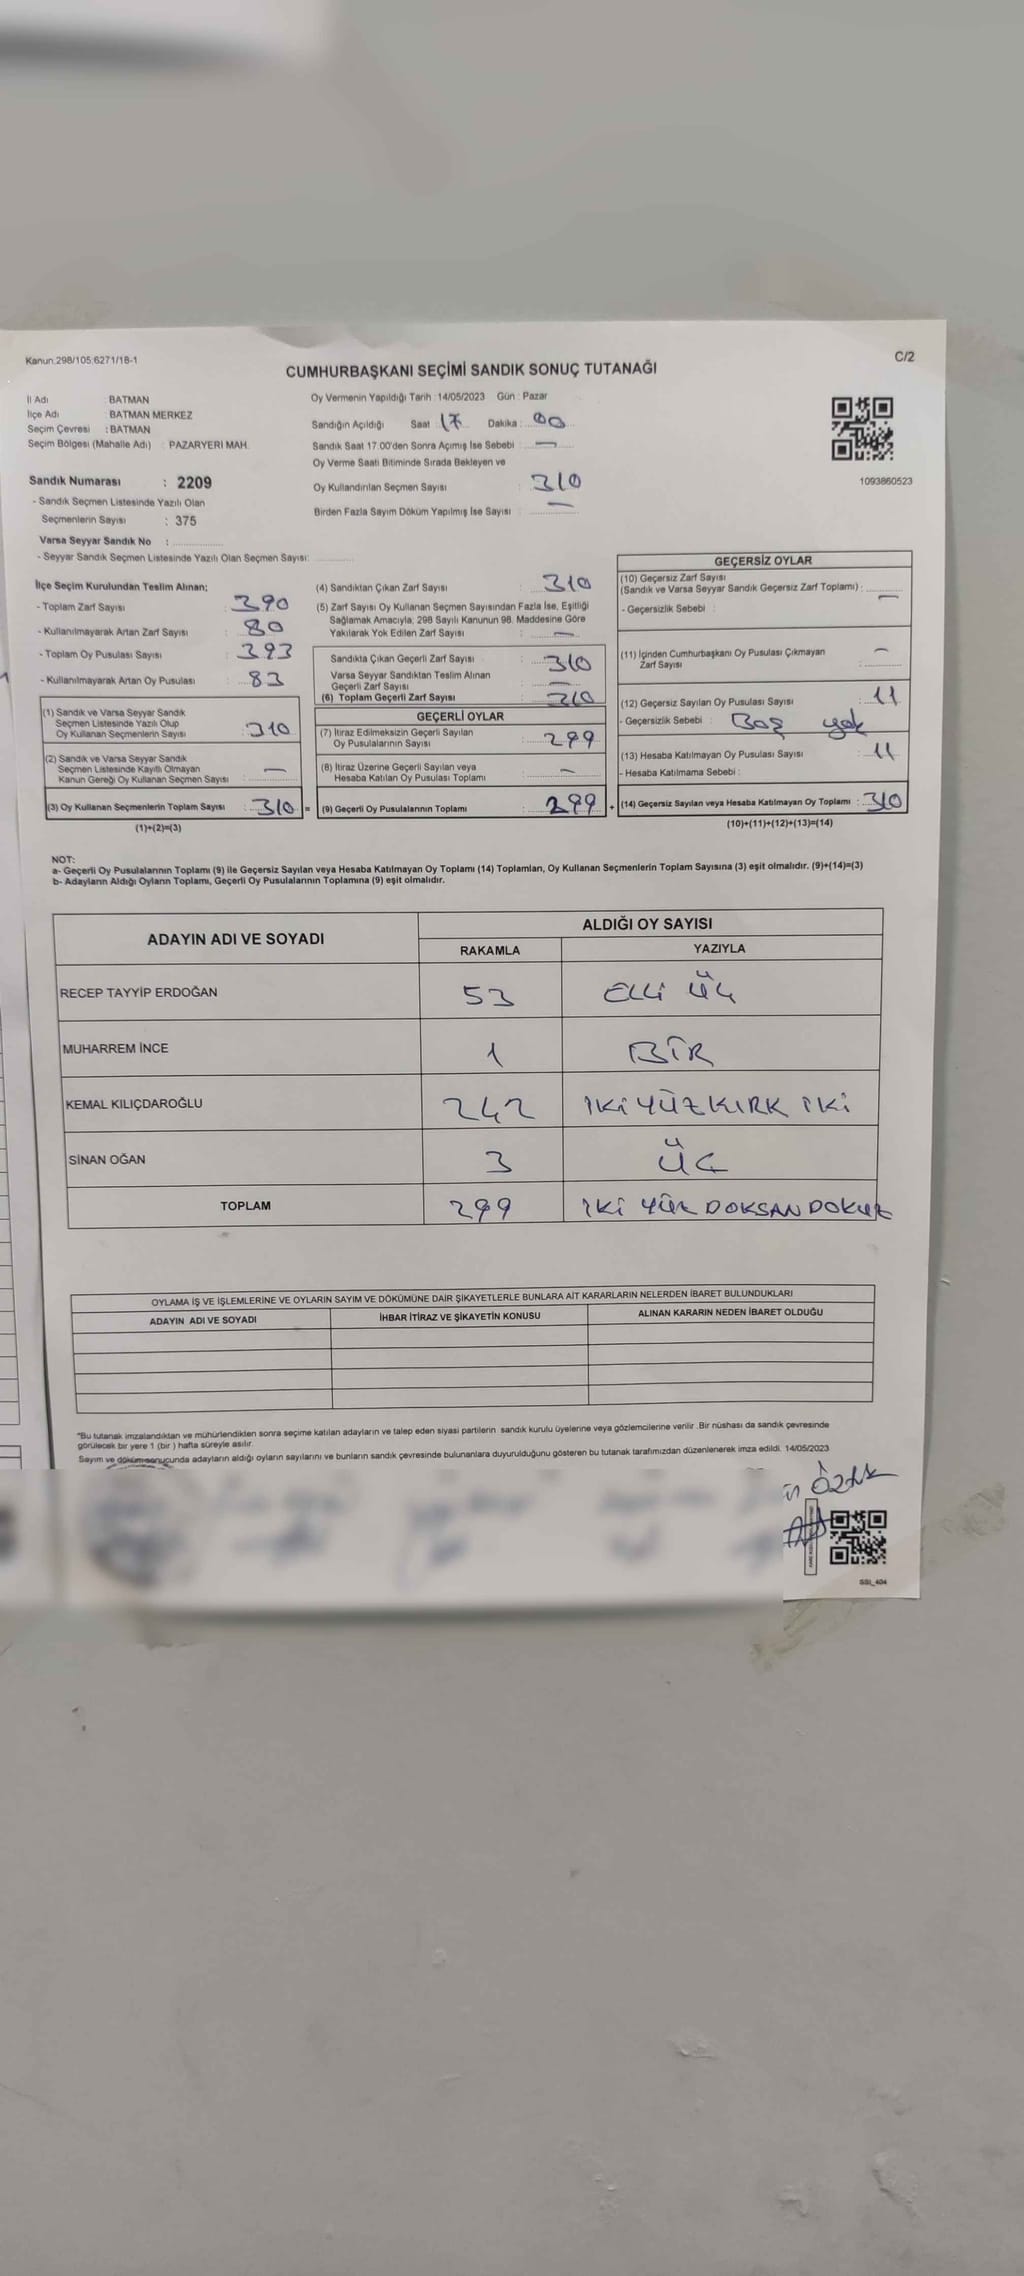 Kanun.298/105,6271/18-1
C/2
CUMHURBAŞKANI SEÇİMİ SANDIK SONUÇ TUTANAĞI
İl Adı : BATMAN
İlçe Adı : BATMAN MERKEZ
Seçim Çevresi : BATMAN
Seçim Bölgesi (Mahalle Adı) : PAZARYERİ MAH.
Sandık Numarası : 2209
- Sandık Seçmen Listesinde Yazılı Olan
Seçmenlerin Sayısı : 375
Varsa Seyyar Sandık No :
- Seyyar Sandık Seçmen Listesinde Yazılı Olan Seçmen Sayısı:
Oy Vermenin Yapıldığı Tarih : 14/05/2023 Gün : Pazar
Sandığın Açıldığı Saat : 17 Dakika : 00
Sandık Saat 17.00'den Sonra Açımış İse Sebebi : —
Oy Verme Saati Bitiminde Sırada Bekleyen ve
Oy Kullandırılan Seçmen Sayısı : 310
Birden Fazla Sayım Döküm Yapılmış İse Sayısı : —
1093860523
İlçe Seçim Kurulundan Teslim Alınan;
- Toplam Zarf Sayısı : 390
- Kullanılmayarak Artan Zarf Sayısı : 80
- Toplam Oy Pusulası Sayısı : 393
- Kullanılmayarak Artan Oy Pusulası : 83
(1) Sandık ve Varsa Seyyar Sandık
Seçmen Listesinde Yazılı Olup
Oy Kullanan Seçmenlerin Sayısı : 310
(2) Sandık ve Varsa Seyyar Sandık
Seçmen Listesinde Kayıtlı Olmayan
Kanun Gereği Oy Kullanan Seçmen Sayısı : —
(3) Oy Kullanan Seçmenlerin Toplam Sayısı : 310 =
(1)+(2)=(3)
(4) Sandıktan Çıkan Zarf Sayısı : 310
(5) Zarf Sayısı Oy Kullanan Seçmen Sayısından Fazla İse, Eşitliği
Sağlamak Amacıyla; 298 Sayılı Kanunun 98. Maddesine Göre
Yakılarak Yok Edilen Zarf Sayısı : —
Sandıkta Çıkan Geçerli Zarf Sayısı : 310
Varsa Seyyar Sandıktan Teslim Alınan
Geçerli Zarf Sayısı : —
(6) Toplam Geçerli Zarf Sayısı : 310
GEÇERLİ OYLAR
(7) İtiraz Edilmeksizin Geçerli Sayılan
Oy Pusulalarının Sayısı : 299
(8) İtiraz Üzerine Geçerli Sayılan veya
Hesaba Katılan Oy Pusulası Toplamı : —
(9) Geçerli Oy Pusulalarının Toplamı : 299 +
GEÇERSİZ OYLAR
(10) Geçersiz Zarf Sayısı
(Sandık ve Varsa Seyyar Sandık Geçersiz Zarf Toplamı) : —
- Geçersizlik Sebebi :
(11) İçinden Cumhurbaşkanı Oy Pusulası Çıkmayan
Zarf Sayısı : —
(12) Geçersiz Sayılan Oy Pusulası Sayısı : 11
- Geçersizlik Sebebi : Boş yok
(13) Hesaba Katılmayan Oy Pusulası Sayısı : 11
- Hesaba Katılmama Sebebi :
(14) Geçersiz Sayılan veya Hesaba Katılmayan Oy Toplamı : 310
(10)+(11)+(12)+(13)=(14)
NOT:
a- Geçerli Oy Pusulalarının Toplamı (9) ile Geçersiz Sayılan veya Hesaba Katılmayan Oy Toplamı (14) Toplamları, Oy Kullanan Seçmenlerin Toplam Sayısına (3) eşit olmalıdır. (9)+(14)=(3)
b- Adayların Aldığı Oyların Toplamı, Geçerli Oy Pusulalarının Toplamına (9) eşit olmalıdır.
ADAYIN ADI VE SOYADI
ALDIĞI OY SAYISI
RAKAMLA YAZIYLA
RECEP TAYYİP ERDOĞAN 53 ELLİ ÜÇ
MUHARREM İNCE 1 BİR
KEMAL KILIÇDAROĞLU 242 İKİ YÜZ KIRK İKİ
SİNAN OĞAN 3 ÜÇ
TOPLAM 299 İKİ YÜZ DOKSAN DOKUZ
OYLAMA İŞ VE İŞLEMLERİNE VE OYLARIN SAYIM VE DÖKÜMÜNE DAİR ŞİKAYETLERLE BUNLARA AİT KARARLARIN NELERDEN İBARET BULUNDUKLARI
ADAYIN ADI VE SOYADI İHBAR İTİRAZ VE ŞİKAYETİN KONUSU ALINAN KARARIN NEDEN İBARET OLDUĞU
"Bu tutanak imzalandıktan ve mühürlendikten sonra seçime katılan adayların ve talep eden siyasi partilerin sandık kurulu üyelerine veya gözlemcilerine verilir .Bir nüshası da sandık çevresinde
görülecek bir yere 1 (bir ) hafta süreyle asılır.
Sayım ve döküm sonucunda adayların aldığı oyların sayılarını ve bunların sandık çevresinde bulunanlara duyurulduğunu gösteren bu tutanak tarafımızdan düzenlenerek imza edildi. 14/05/2023
SSI_404